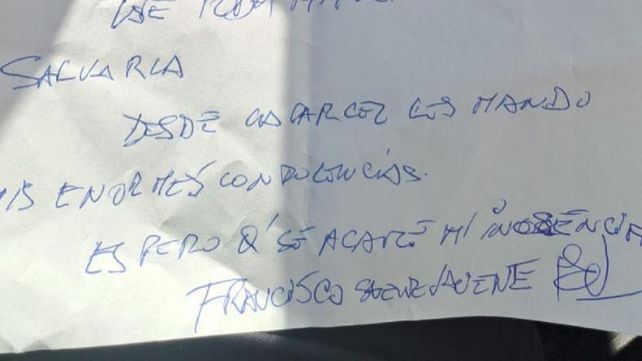 SALVARLA
DESDE LA CARCEL LES MANDO
MIS ENORMES CONDOLENCIAS.
ESPERO Q' SE ACLARE MI INOCENCIA
FRANCISCO